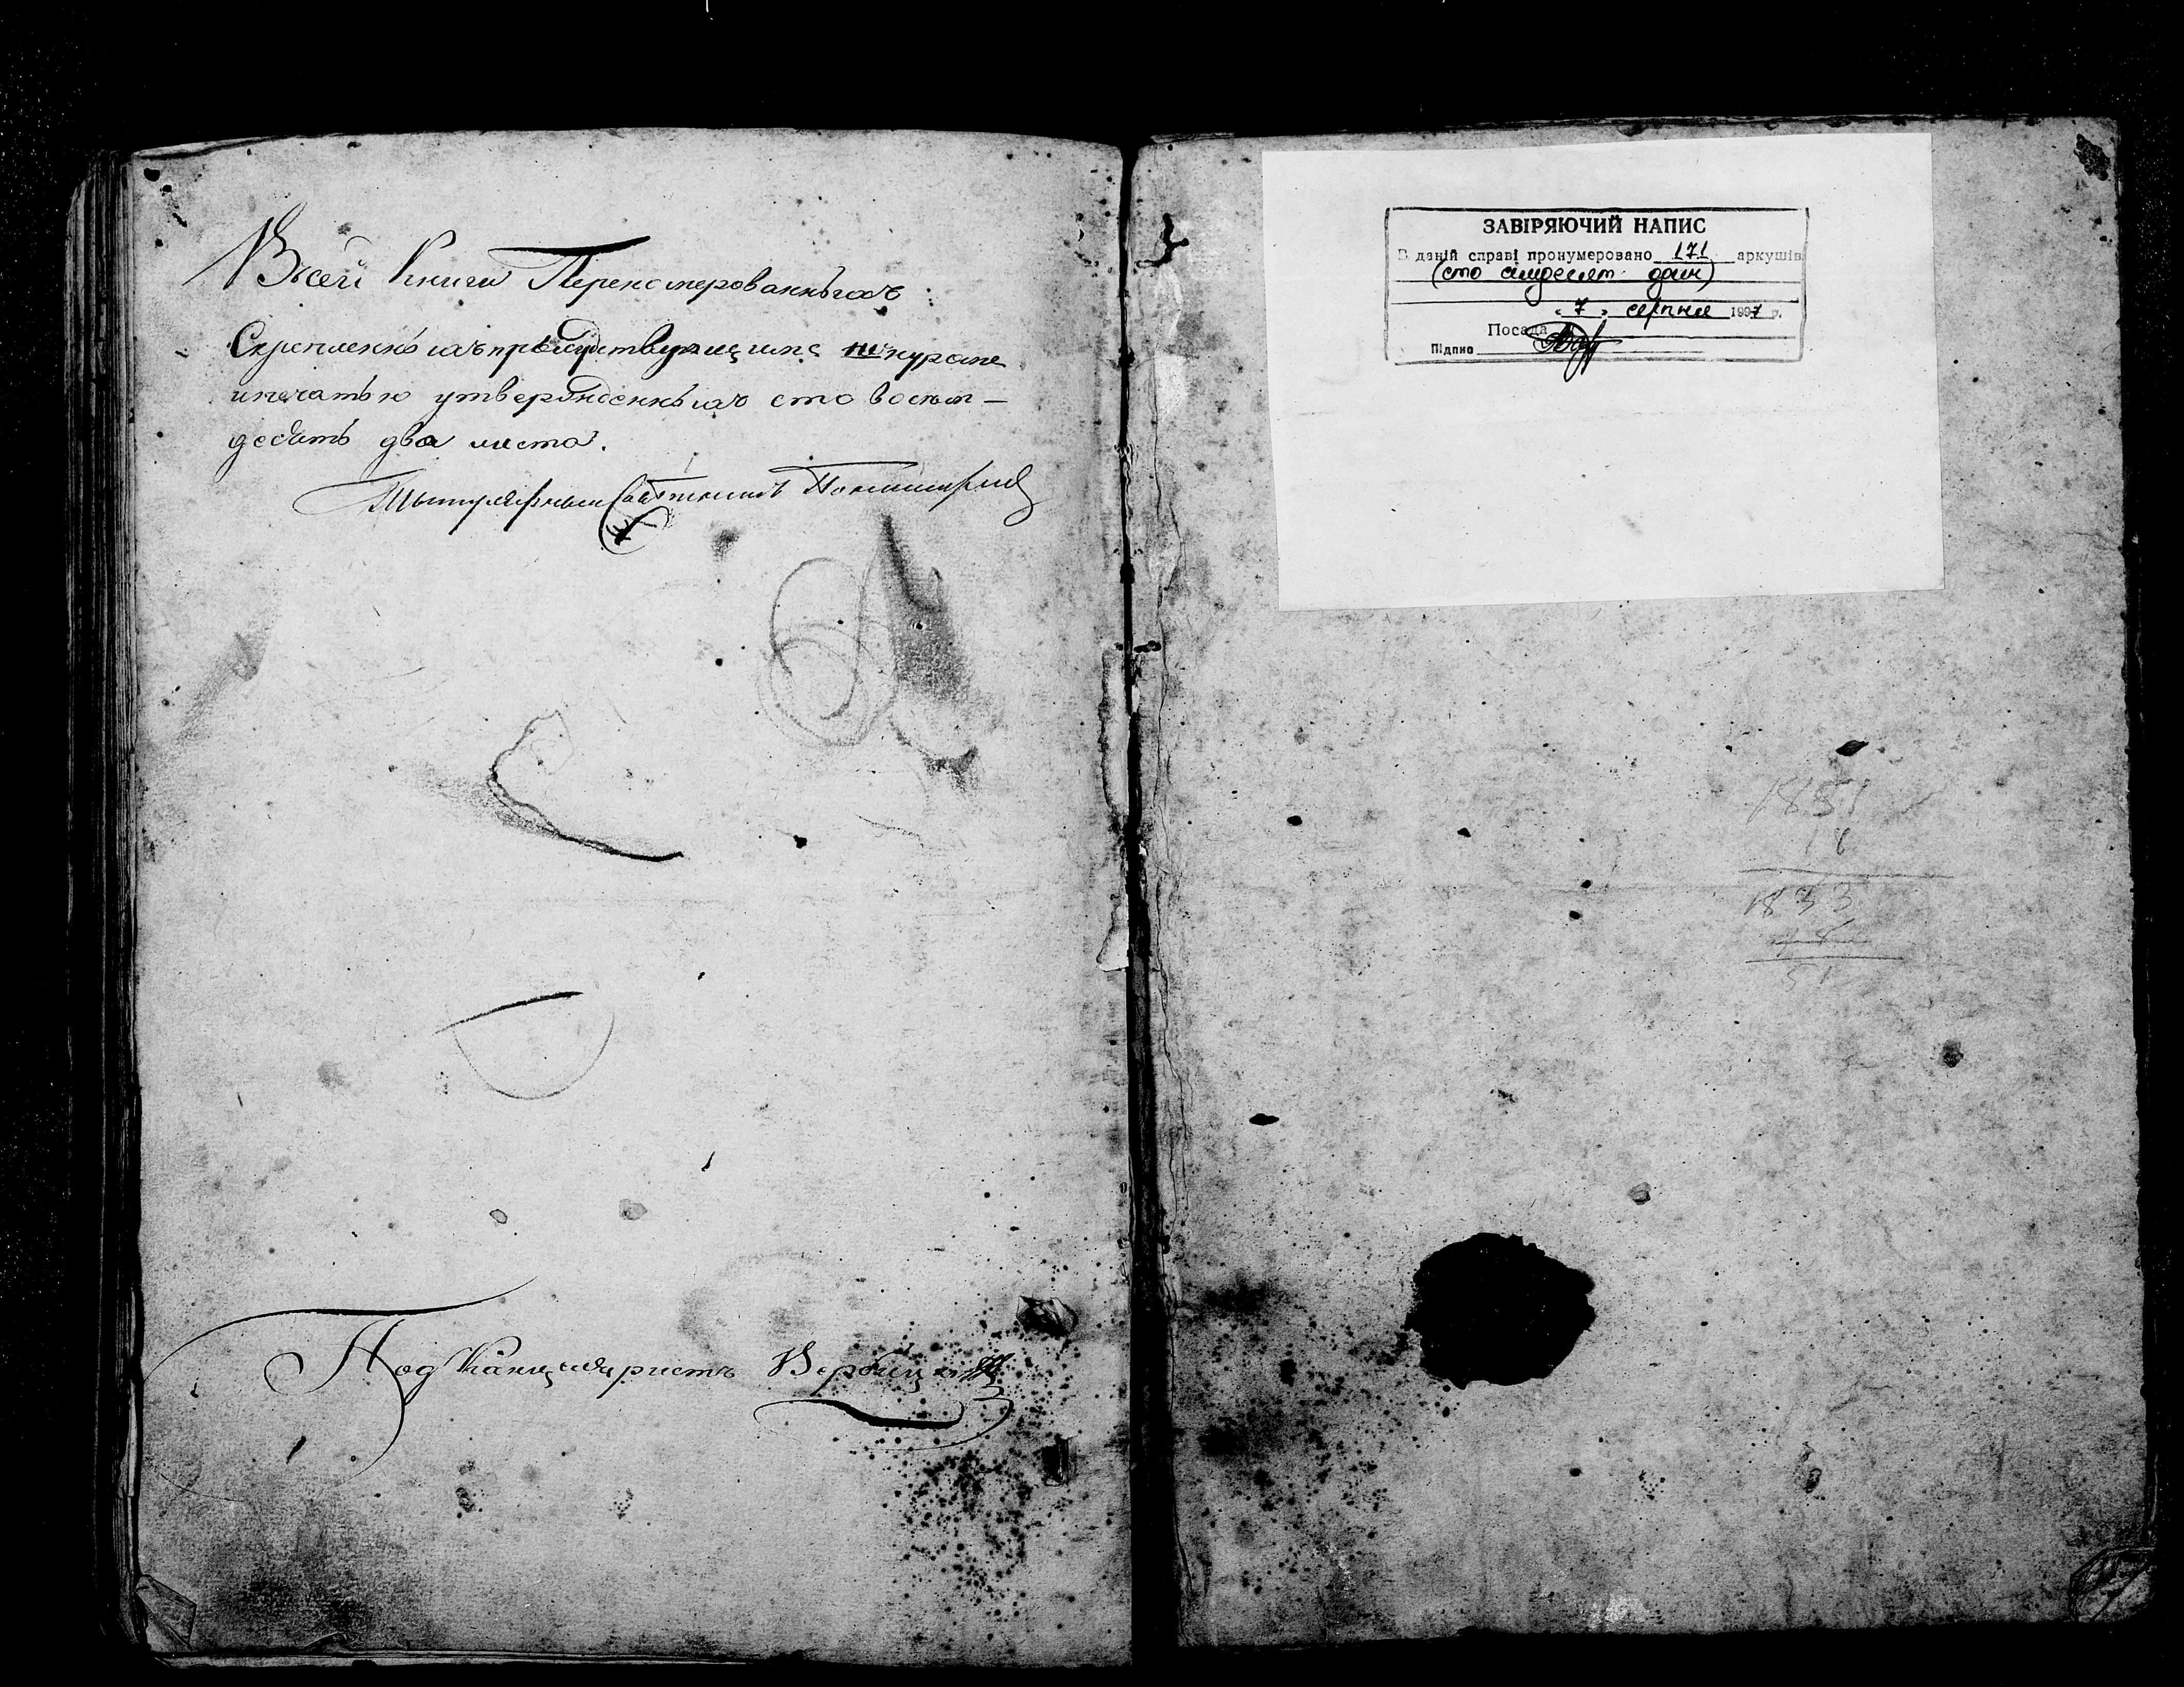 Всей Книги Переномерованныхъ
Скрепленныхъ присудствующимъ шнурапе
ипечатью утвержденныхъ сто восемь–
десять два листа.
Титулярный Советникъ
Подканцеляристъ Вербицкий
ЗАВІРЯЮЧИЙ НАПИС
В даній справі пронумеровано 171 аркушів
(сто сімдесят один)
"7" серпня 1997 р.
Посада
Підпис
1851
18
1833
51